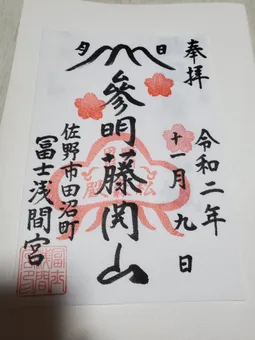 奉拝
令和二年
十一月九日
月 日
參明藤開山
佐野市田沼町
冨士浅間宮